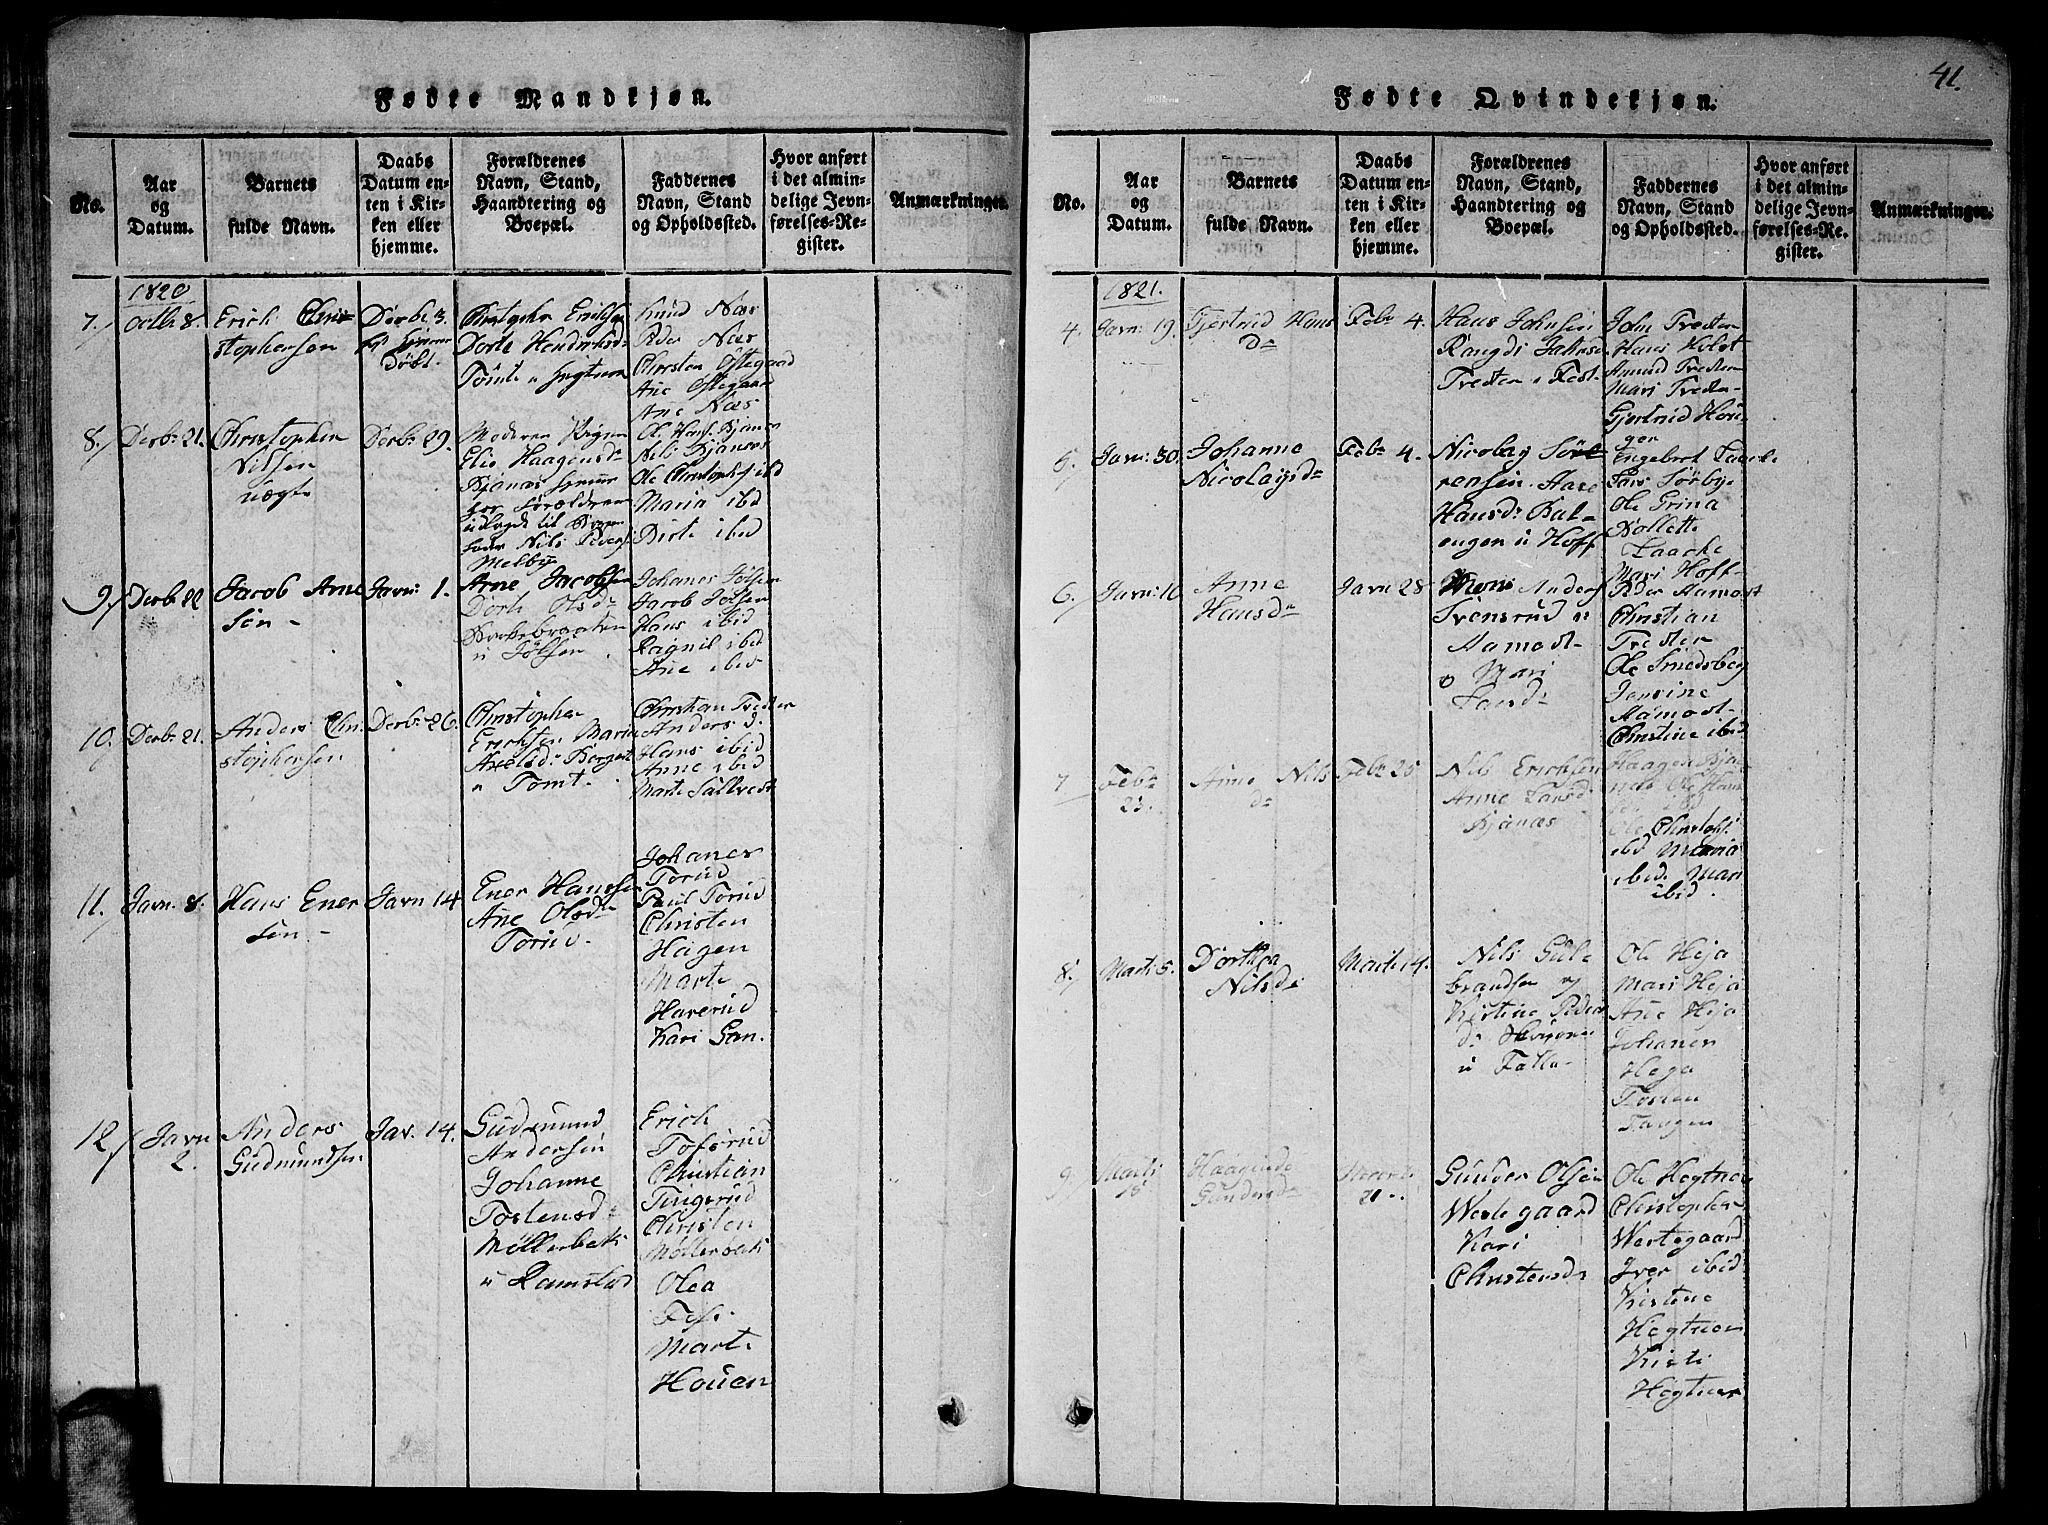 41.
Fødte Mandkjøn.
No.
Aar
og
Datum.
Barnets
fulde Navn.
Daabs
Datum en-
ten i Kir-
ken eller
hjemme.
Forældrenes
Navn, Stand,
Haandtering og
Boepæl.
Faddernes
Navn, Stand
og Opholdssted.
Hvor anført
i det almin-
delige Jevn-
førelses-Re-
gister.
Anmærkninger.
1820
7.
Octb 8.
Erich Chri
stophersen
Decb: 3.
Hjemme
Døbt.
Christopher Erichsen
Dorte Hendrichsd:
Tømte u Hegtnen
Knud Næs
Peder Næs
Christen Østegaad
Ane Østegaard
Ane Næs
8.
Decb: 21.
Christopher
Nilsen
uægte
Decb: 29.
Moderen Pigen
Elie Haagensd:
Bjønæs hjemme
hos Forældrene
udlagde til Barne
fader Nils Peders
Melbye
Ole Hans. Bjønæs
Nils Bjønæs
Ole Christophs ibid
Maria ibid
Dirte ibid
9.
Decb: 22
Jacob Arne
sen -
Javn: 1.
Arne Jacobsen
Dorte Olsd:
Birkebraaten
u Jølsen
Johanes Jølsen
Jacob Jølsen
Hans ibid
Ragnil ibid
Ane ibid
10.
Decb: 21.
Anders Chri
stophersen
Decb: 26.
Christopher
Erichsen Maria
Axelsd: Borget
u Tomt.
Christian Tredter
Anders d.
Hans ibid
Anne ibid
Marte Sallvest
11.
Javn: 8.
Hans Ener
sen -
Javn 14
Ener Hansen
Ane Olsd:
Torud.
Johanes
Torud
Paul Torud
Christen
Hagen
Marte
Haverud
Kari Gan.
12.
Javn
2.
Anders
Gudmundsen
Jav. 14.
Gudmund
Andersen
Johanne
Tostensd:
Møllerbak
u Ramstad
Erich
Toverud
Christian
Tingerud
Christen
Møllerbak
Olea
Marte
Houen
Fødte Qvindekjøn.
No.
Aar
og
Datum.
Barnets
fulde Navn.
Daabs
Datum en-
ten i Kir-
ken eller
hjemme.
Forældrenes
Navn, Stand,
Haandtering og
Boepæl.
Faddernes
Navn, Stand
og Opholdssted.
Hvor anført
i det almin-
delige Jevn-
førelses-Re-
gister.
Anmærkninger.
1821.
4.
Javn: 19.
Gjertrud Hans
d:
Feb: 4.
Hans Johnsen
Rangdi Jahnsd
Tredten u Fest.
John Tredten
Hans Holst
Amund Tredten
Mari Tredte-
Gjertrud Hou-
ger
5.
Javn: 30.
Johanne
Nicolaysd:
Feb: 4.
Nicolay Sør
ensen. Ane
Hansd: Bal-
engen u Hoff
Engebret Laache
Lars Sørbye
Ole Grina
Nollette
Laache
Mari Hoff-
6.
Javn: 10
Anne
Hansd:
Javn 28
Anders
Svensrud u
Aamodt-
o Mari
Larsd:
Peder Aamodt
Christian
Tredter
Ole Smedsberg
Jonsine
Aamodt-
Christine ibid
7
Feb:
23.
Anne Nils
d:
Feb: 25
Nils Erichsen
Anne Larsd:
Bjønæs
Haagen Bjø-
næs Ole Hans
ibid
Ole Christoh:
ibid Maria
ibid. Mari
ibid.
8.
Marti 5.
Dorthea
Nilsd:
Marti 4.
Nils Gul-
brandsen og
Kirstine Peders
d:
u Falla-
Ole Heja
Mari Heja
Ane Heja
Johanes
Heja
Tosten
Tangen
9.
Marti
18
Haaginde
Gundersd:
Marti
21.
Gunder Olsen
Westegaard
Kari
Christensd:
Ole Hegtnen
Christopher
Westegaard
Iver ibid
Kirstine
Hegtnen
Kirsti
Hegtnen